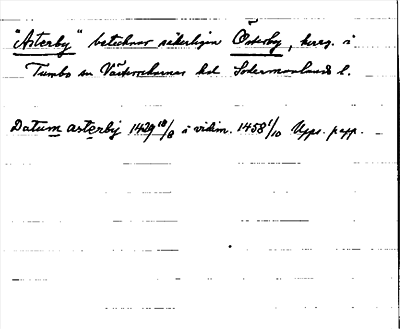 "Asterby" betecknar säkerligen Österby, herrg. i
Tumbo sn Västerrekarnes hd Södermanlands l.
Datum asterby 1429 18/8 i vidim. 1458 1/10 Upps. papp.